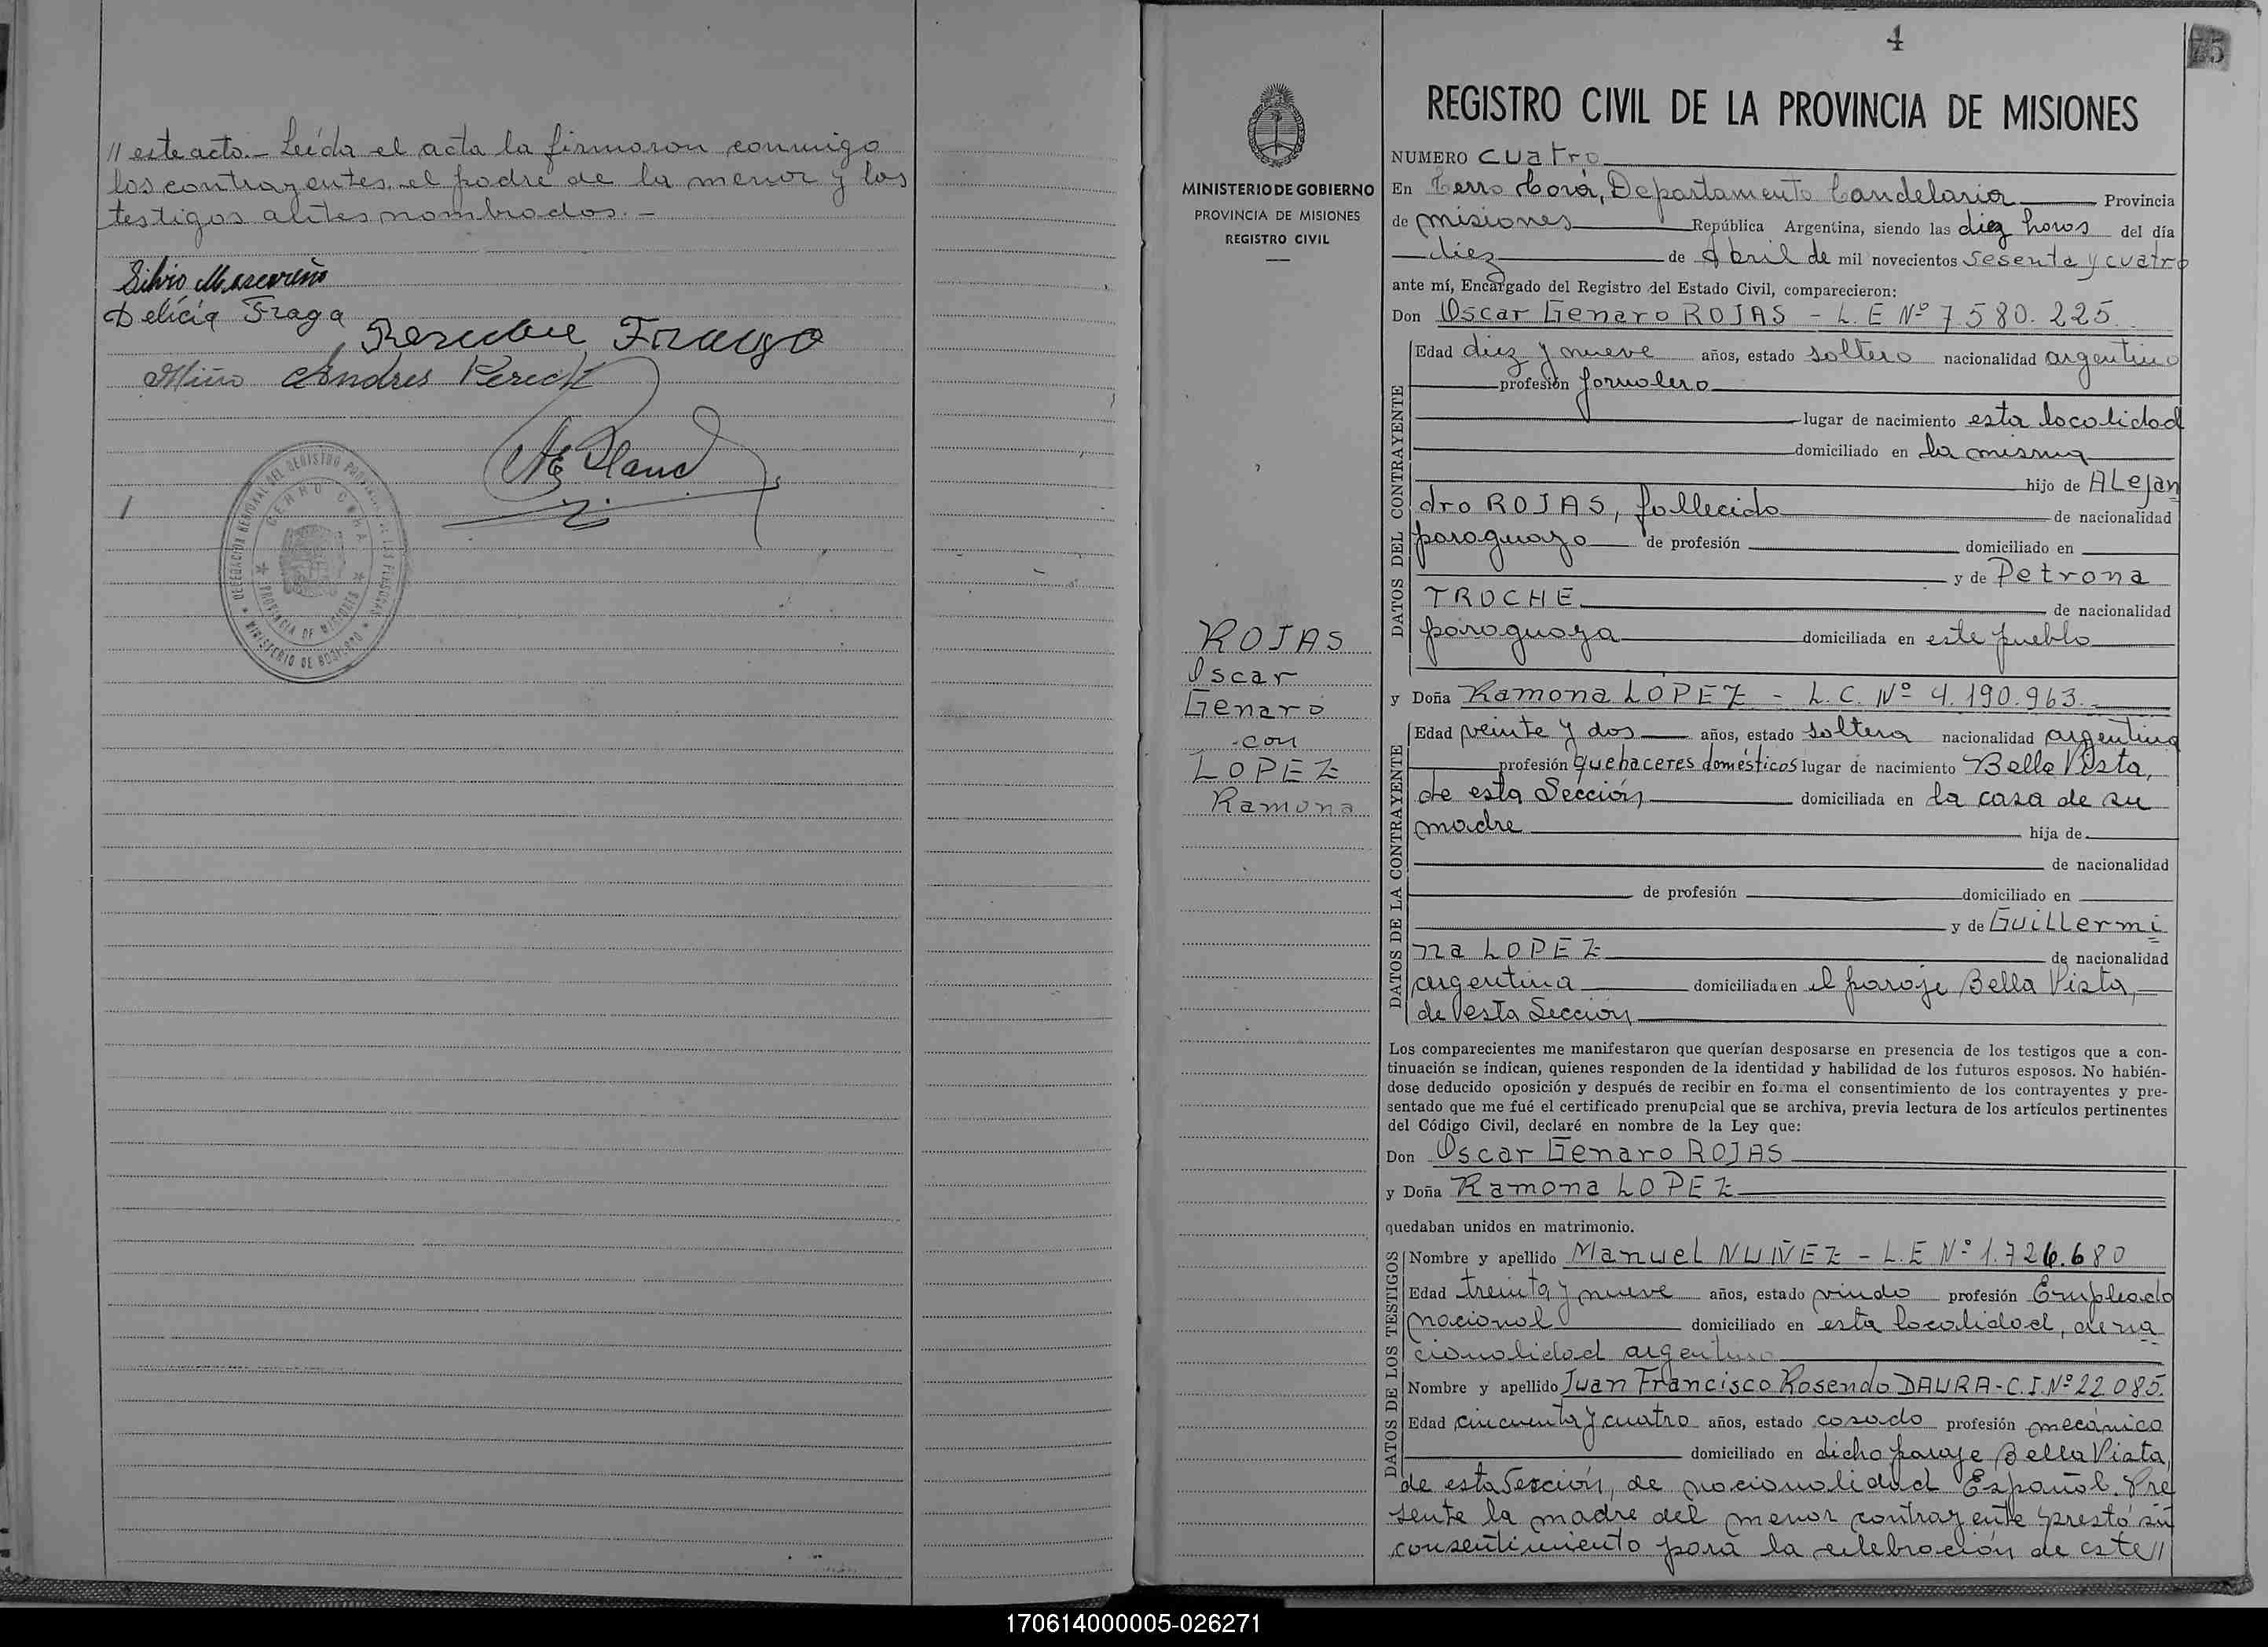 // este acto.- Leída el acta la firmaron conmigo
los contrayentes, el padre de la menor y los
testigos antes nombrados.-
Silvio
Delicia Fraga
Fraga
Miño Andres
DELEGACION REGIONAL DEL REGISTRO PROVINCIAL DE LAS PERSONAS
CERRO CORA
PROVINCIA DE MISIONES
MINISTERIO DE GOBIERNO
4
75
MINISTERIO DE GOBIERNO
PROVINCIA DE MISIONES
REGISTRO CIVIL
ROJAS
Oscar
Genaro
-con
LOPEZ
Ramona
REGISTRO CIVIL DE LA PROVINCIA DE MISIONES
NUMERO cuatro
En Cerro Corá, Departamento Candelaria Provincia
de misiones República Argentina, siendo las diez horas del día
diez de Abril de mil novecientos sesenta y cuatro
ante mí, Encargado del Registro del Estado Civil, comparecieron:
Don Oscar Genaro ROJAS - L. E Nº 7.580.225.
DATOS DEL CONTRAYENTE
Edad diez y nueve años, estado soltero nacionalidad argentino
profesión jornalero
lugar de nacimiento esta localidad
domiciliado en la misma
hijo de ALejan
dro ROJAS, fallecido de nacionalidad
paraguayo de profesión domiciliado en
y de Petrona
TROCHE de nacionalidad
paraguaya domiciliada en este pueblo
y Doña Ramona LOPEZ - L. C. Nº 4.190.963.-
DATOS DE LA CONTRAYENTE
Edad veinte y dos años, estado soltera nacionalidad argentina
profesión quehaceres domésticos lugar de nacimiento Bella Vista,
de esta Sección, domiciliada en la casa de su
madre hija de
de nacionalidad
de profesión domiciliado en
y de Guillermi
na LOPEZ de nacionalidad
argentina domiciliada en el paraje Bella Vista,
de esta Sección
Los comparecientes me manifestaron que querían desposarse en presencia de los testigos que a con-
tinuación se indican, quienes responden de la identidad y habilidad de los futuros esposos. No habién-
dose deducido oposición y después de recibir en forma el consentimiento de los contrayentes y pre-
sentado que me fué el certificado prenupcial que se archiva, previa lectura de los artículos pertinentes
del Código Civil, declaré en nombre de la Ley que:
Don Oscar Genaro ROJAS
y Doña Ramona LOPEZ
quedaban unidos en matrimonio.
DATOS DE LOS TESTIGOS
Nombre y apellido Manuel NUÑEZ - L.E Nº 1.726.680
Edad treinta y nueve años, estado viudo profesión Empleado
nacional domiciliado en esta localidad, de na
cionalidad argentino
Nombre y apellido Juan Francisco Rosendo DAURA - C.I. Nº 22.085.
Edad cincuenta y cuatro años, estado casado profesión mecánico
domiciliado en dicho paraje Bella Vista,
de esta Sección, de nacionalidad Español. Pre
sente la madre del menor contrayente prestó su
consentimiento para la celebración de este //
170614000005-026271